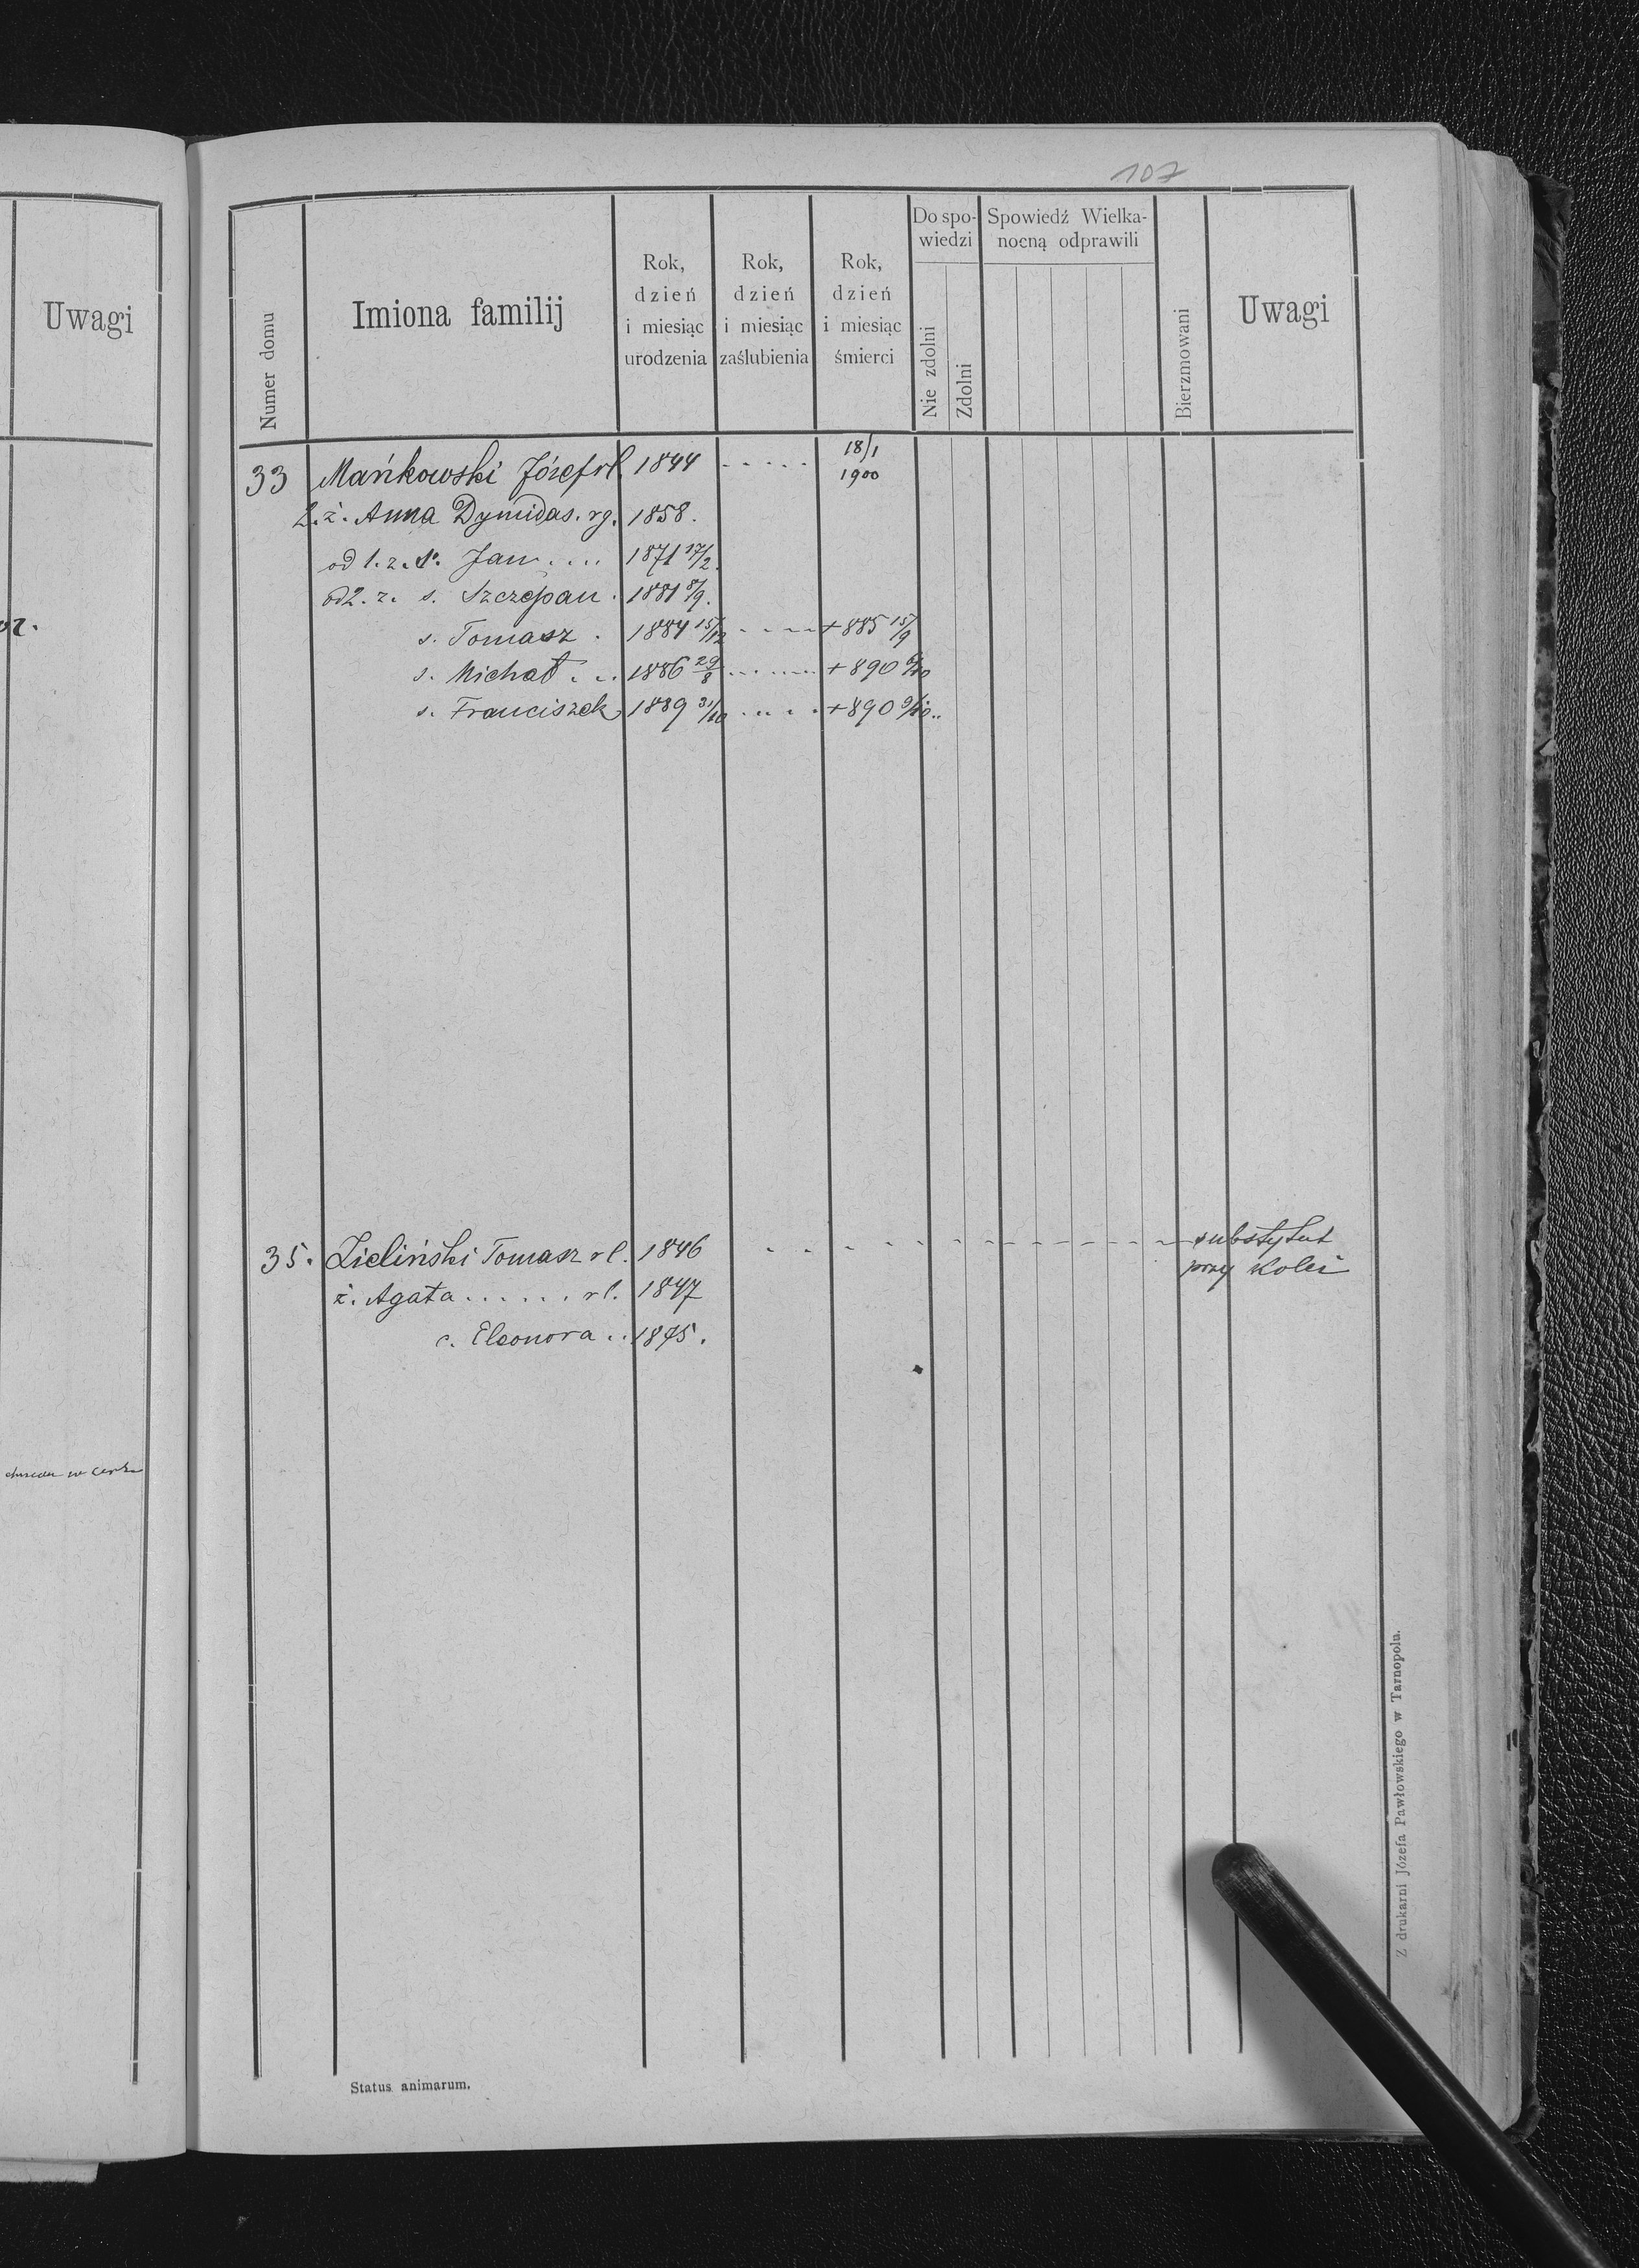 Uwagi
107
Numer domu
Imiona familij
Rok,
dzień
i miesiąc
urodzenia
Rok,
dzień
i miesiąc
zaślubienia
Rok,
dzień
i miesiąc
śmierci
Do spo-
wiedzi
Nie zdolni
Zdolni
Spowiedź Wielka-
nocną odprawili
Bierzmowani
Uwagi
33 Mańkowski Józef rł. 1844 . . . . . 18/1
1900
2. ż. Anna Dymidas. rg. 1858.
od 1. z. s. Jan .... 1871 17/2.
od 2. z. s. Szczepan . 1881 8/9.
s. Tomasz . 1884 15/12 - - - - + 885 15/9
s. Michał . . . 1886 29/8 ....... + 890 6/10
s. Franciszek 1889 31/10 ..... + 890 9/10..
35. Zieliński Tomasz rl. 1846 - - - - - - - - - - substytut
przy Kolei
ż. Agata . . . . . . rl. 1847
c. Eleonora .. 1875.
w
Status animarum.
Z drukarni Józefa Pawłowskiego w Tarnopolu.